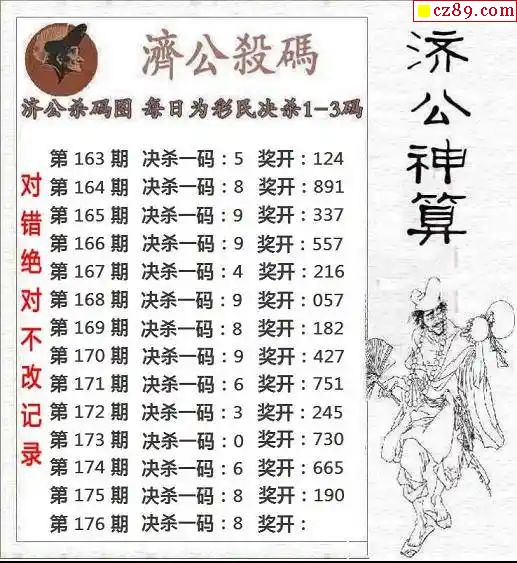 cz89.com
濟公殺碼
济公杀码图 每日为彩民决杀1-3码
对错绝对不改记录
第 163 期 决杀一码：5 奖开：124
第 164 期 决杀一码：8 奖开：891
第 165 期 决杀一码：9 奖开：337
第 166 期 决杀一码：9 奖开：557
第 167 期 决杀一码：4 奖开：216
第 168 期 决杀一码：9 奖开：057
第 169 期 决杀一码：8 奖开：182
第 170 期 决杀一码：9 奖开：427
第 171 期 决杀一码：6 奖开：751
第 172 期 决杀一码：3 奖开：245
第 173 期 决杀一码：0 奖开：730
第 174 期 决杀一码：6 奖开：665
第 175 期 决杀一码：8 奖开：190
第 176 期 决杀一码：8 奖开：
济公神算